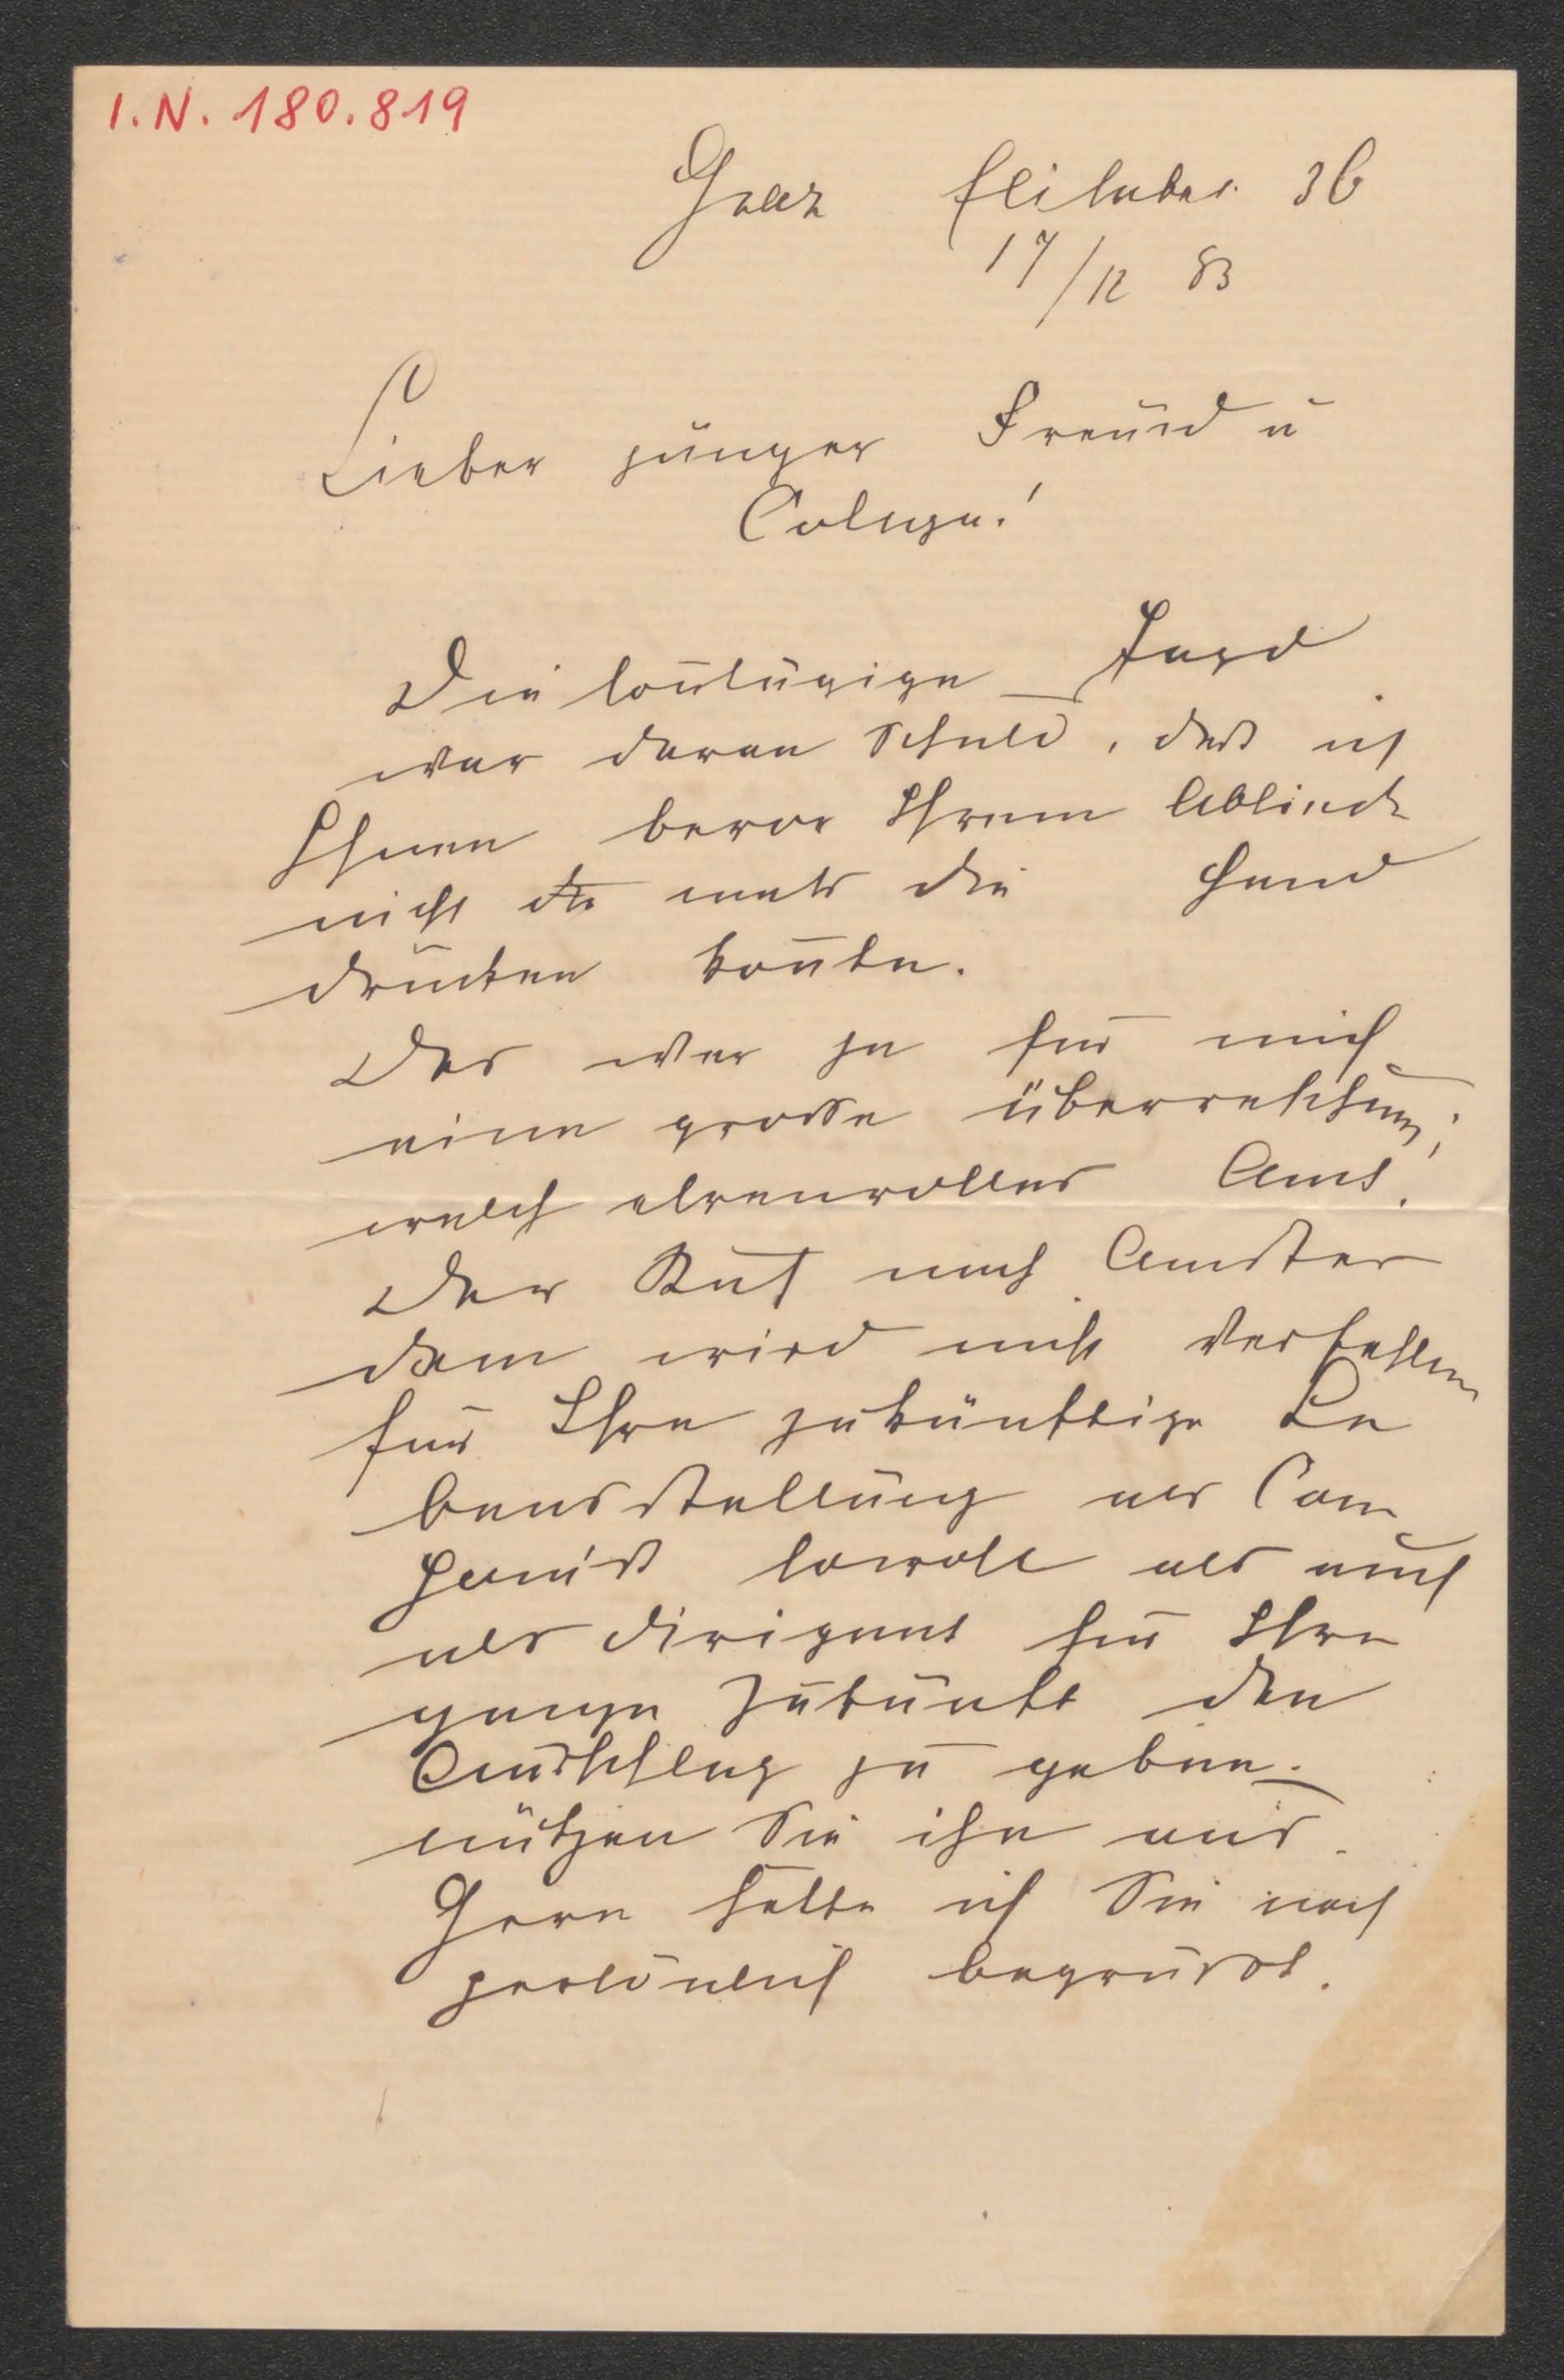 I.N. 180.819
Graz Elisabet. 36
17/12 83
Lieber junger Freund u
Colega!
Die sontägige Jagd
war daran Schuld, daß ich
Ihnen bevor Ihrem
nicht mals die Hand
drücken konte.
Das war ja für mich
eine grosse überraschung;
welch ehrenvolles Amt!
Der Ruf nach Amster
dam wird nicht verfehlen
für Ihre zukünftige Le
bensstellung als Com
ponist sowohl als auch
als Dirigent für Ihre
ganze Zukunft den
Ausschlag zu geben.
nützen Sie ihn aus.
Gern hätte ich Sie noch
persönlich begrüsst.